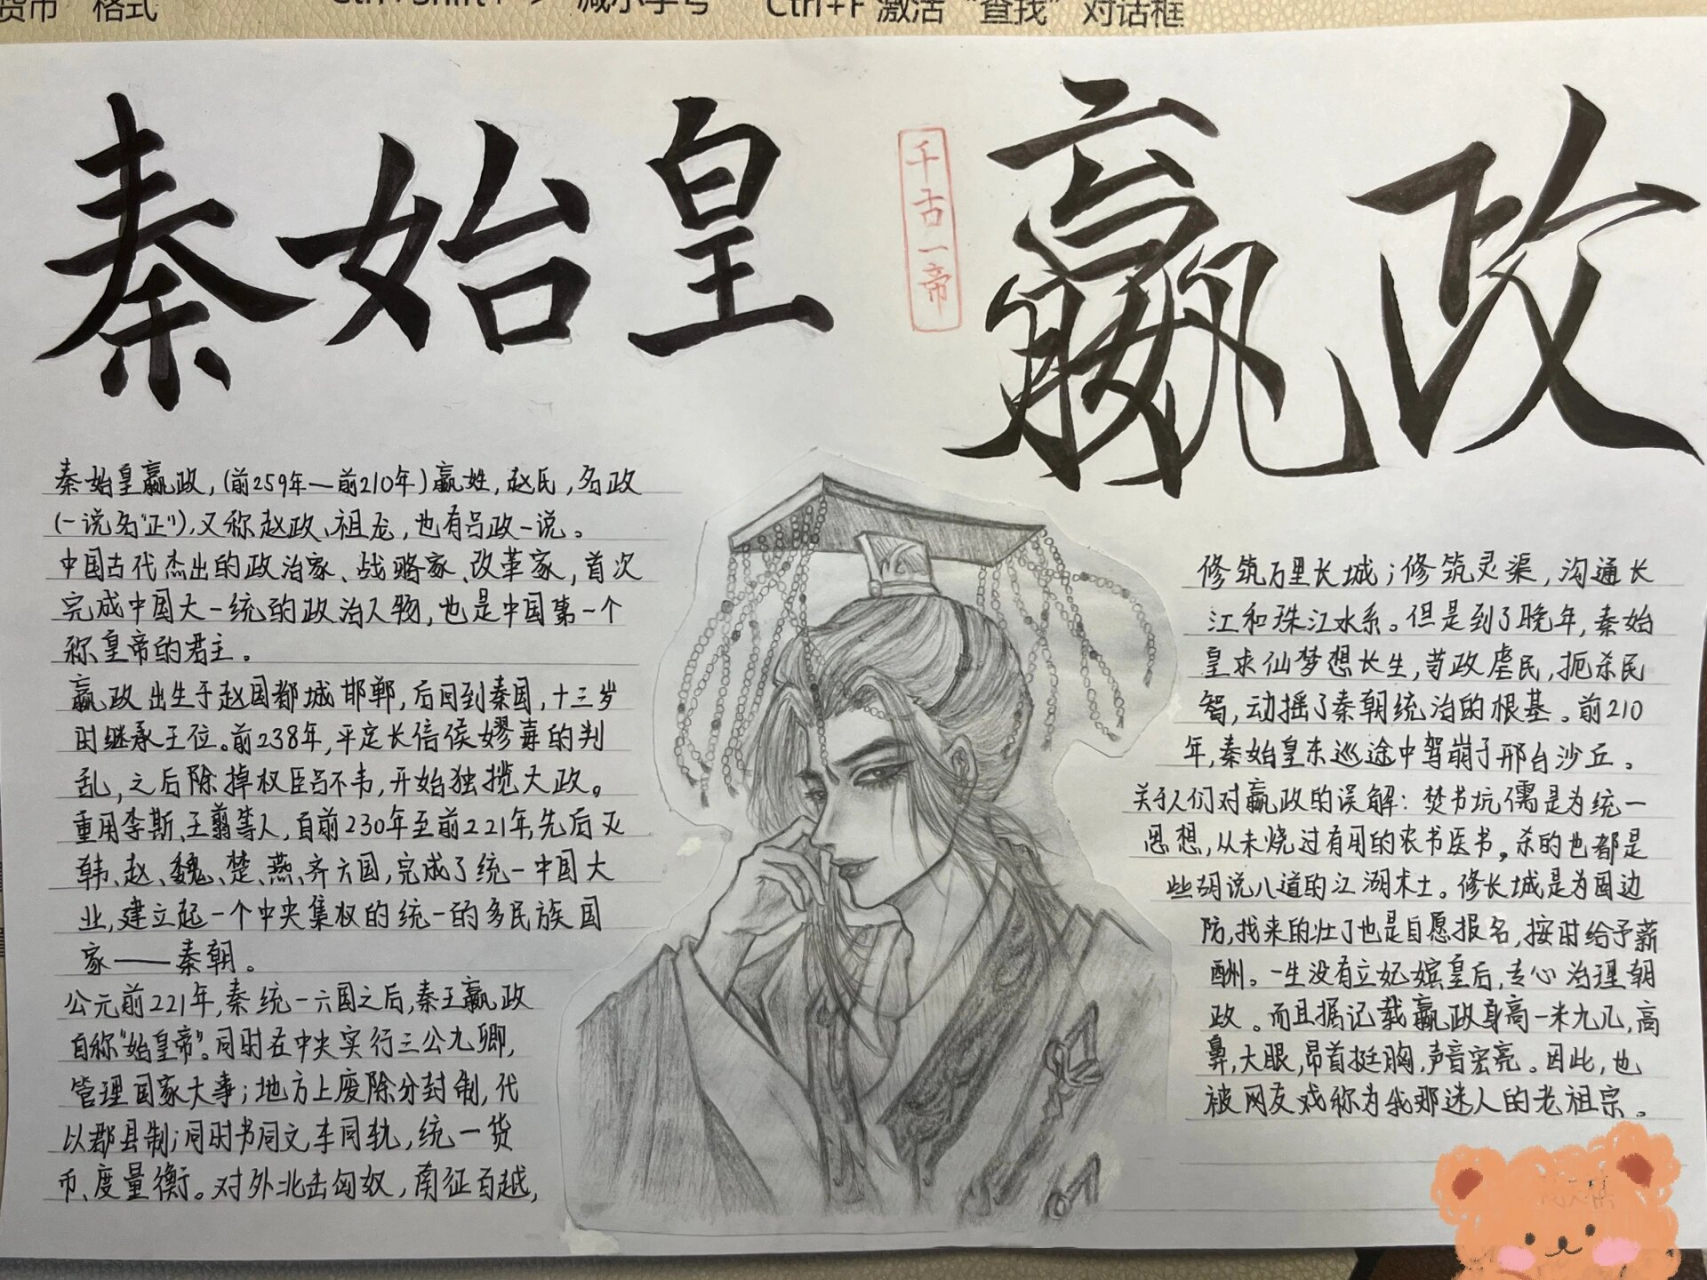 货币 格式
Ctrl+Shift+
减小字号
Ctrl+F 激活“查找”对话框
秦始皇
千古一帝
嬴政
秦始皇嬴政,(前259年—前210年)嬴姓,赵氏,名政
(一说名“正”),又称赵政、祖龙,也有吕政一说。
中国古代杰出的政治家、战略家、改革家,首次
完成中国大一统的政治人物,也是中国第一个
称皇帝的君主。
嬴政出生于赵国都城邯郸,后回到秦国,十三岁
时继承王位。前238年,平定长信侯嫪毐的判
乱,之后除掉权臣吕不韦,开始独揽大政。
重用李斯、王翦等人,自前230年至前221年,先后灭
韩、赵、魏、楚、燕、齐六国,完成了统一中国大
业,建立起一个中央集权的统一的多民族国
家——秦朝。
公元前221年,秦统一六国之后,秦王嬴政
自称“始皇帝”。同时在中央实行三公九卿,
管理国家大事;地方上废除分封制,代
以郡县制;同时书同文车同轨,统一货
币、度量衡。对外北击匈奴,南征百越,
修筑万里长城;修筑灵渠,沟通长
江和珠江水系。但是到了晚年,秦始
皇求仙梦想长生,苛政虐民,扼杀民
智,动摇了秦朝统治的根基。前210
年,秦始皇东巡途中驾崩于邢台沙丘。
关于人们对嬴政的误解:焚书坑儒是为统一
思想,从未烧过有用的农书医书,杀的也都是
些胡说八道的江湖术士。修长城是为固边
防,找来的壮丁也是自愿报名,按时给予薪
酬。一生没有立妃嫔皇后,专心治理朝
政。而且据记载嬴政身高一米九几,高
鼻,大眼,昂首挺胸,声音宏亮。因此,也
被网友戏称为我那迷人的老祖宗。